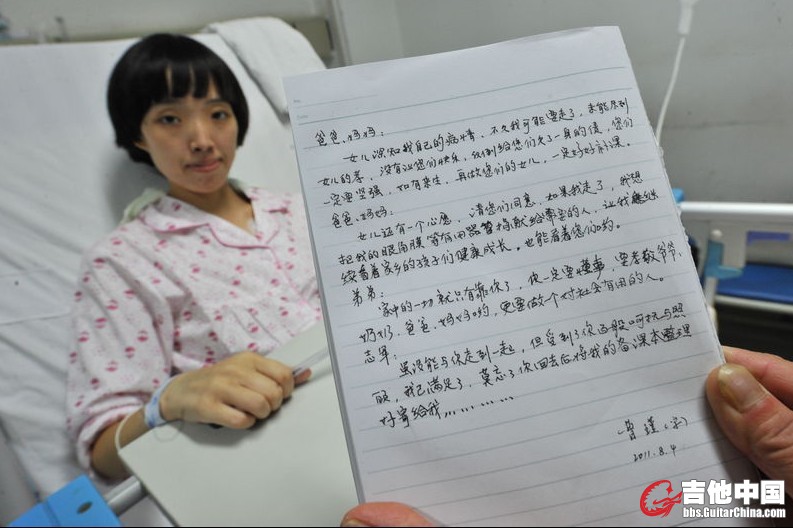 爸爸、妈妈：
女儿深知我自己的病情，不久我可能要走了，未能尽到
女儿的孝，没有让你们快乐，纵倒给您们欠了一身的债，您们
一定要坚强，如有来生，再做你们的女儿，一定好好补课。
爸爸、妈妈：
女儿还有一个心愿，请您们同意，如果我走了，我想
把我的眼角膜等有用器官捐献给需要的人，让我继继
续看着家乡的孩子们健康成长。也能看着您们哟。
弟弟：
家中的一切就只有靠你了，你一定要懂事，要孝敬爷爷、
奶奶、爸爸、妈妈哟，更要做个对社会有用的人。
志军：
虽没能与你走到一起，但受到了你这般呵护与照
顾，我已满足了，莫忘了你回去后将我的备课本整理
好寄给我…………
曾瑾（字）
2011.8.4
吉他中国
bbs.GuitarChina.com